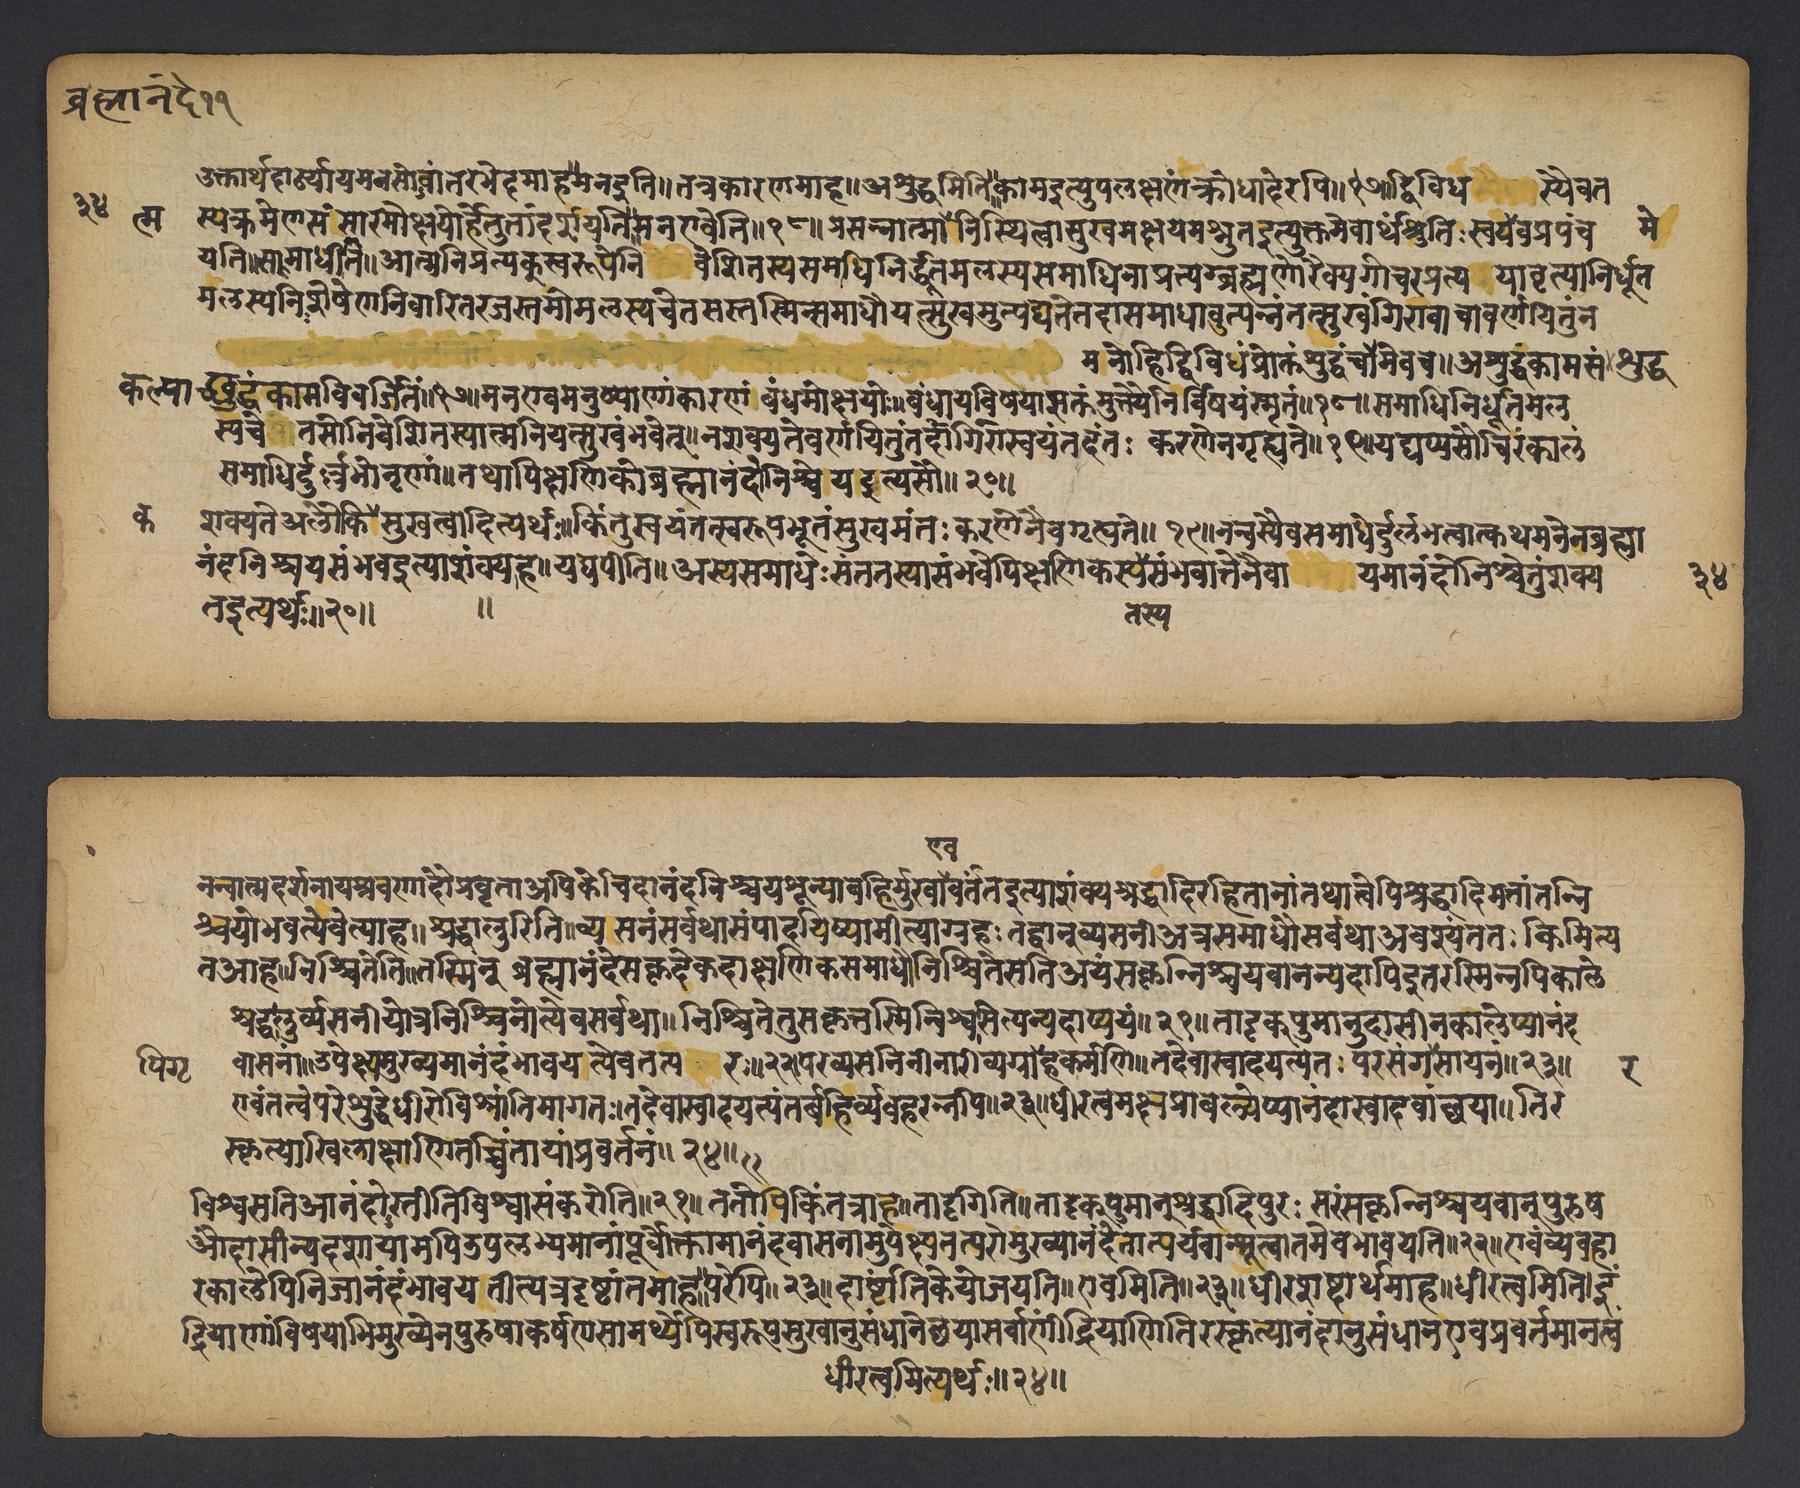 ब्रह्मानंदे११
उक्तार्थदार्ढ्याय मनसोवांतरभेदमाह॥मनइति॥तत्रकारणमाह॥अशुद्धमिति॥कामइत्युपलक्षणंक्रोधादेरपि॥१७॥द्विविध स्यैवत
३४ त्म स्यक्रमेणसंसारमोक्षयोर्हेतुतांदर्शयति॥मनएवेति॥१८॥प्रसन्नात्मा निस्थित्वासुखमक्षयमश्नुतइत्युक्तमेवार्थंश्रुतिःस्वयेवप्रपंच मे
यति॥समाधीति॥आत्मनिप्रत्यक्स्वरूपेनि वेशितस्यसमधिनिर्द्धूतमलस्यसमाधिनाप्रत्यग्ब्रह्मणोरैक्यगोचरप्रत्य यावृत्यानिर्धूत
मलस्यनिःशेषेणनिवारितरजस्तमोमलस्यचेतसस्तस्मिन्समाधौयत्सुखमुत्पद्यतेतदासमाधावुत्पन्नंतत्सुखंगिरावाचावर्णयितुंन
मनोहिद्विविधंप्रोक्तंशुद्धंचामेवच॥अशुद्धंकामसं शुद्ध
कल्पा च्छुद्धंकामविवर्जितं॥१७॥मनएवमनुष्याणांकारणंबंधमोक्षयोः॥बंधायविषयासक्तंमुक्त्यैनिर्विषयंस्मृतं॥१८॥समाधिनिर्धूतमल
स्यचे तसोनिवेशितस्यात्मनियत्सुखंभवेत्॥नशक्यतेवर्णयितुंतदागिरास्वयंतदंतः करणेनगृह्यते॥१९॥यद्यप्यसौचिरंकालं
समाधिर्दुर्ल्लभोनृणां॥तथापिक्षणिकोब्रह्मानंदंनिश्चाययइत्यसौ॥२०॥
क शक्यतेअलौकि सुखत्वादित्यर्थः॥किंतुस्वयंतत्स्वरूपभूतंसुखमंतः करणेनैवगृह्यते॥१९॥नन्वस्यैवसमाधेर्दुर्लभत्वात्कथमनेनब्रह्मा
नंदनिश्चयसंभवइत्याशंक्यह॥यद्यपीति॥अस्यसमाधेःसंततस्यासंभवेपिक्षणिकस्य संभवात्तेनैवा यमानंदोनिश्चेतुंशक्य ३४
तइत्यर्थः॥२०॥ ॥ तस्य
एव
नन्वात्मदर्शनायश्रवणादौप्रवृत्ताअपिकेचिदानंदनिश्चयशून्याबहिर्मुखा वर्तंतइत्याशंक्यश्रद्धादिरहितानांतथात्वेपिश्रद्धादिमतांतन्नि
श्चयोभवत्येवेत्याह॥श्रद्धालुरिति॥व्यसनंसर्वथासंपादयिष्यामीत्याग्रहःतद्वान्व्यसनीअत्रसमाधौसर्वथाअवश्यंततःकिमित्य
तआह॥निश्चितेति॥तस्मिन् ब्रह्मानंदेसकृदेकदाक्षणिकसमाधौनिश्चितेसतिअयंसकृन्निश्चयवानन्यदापिइतरस्मिन्नपिकाले
श्रद्धालुर्व्यसनीयोत्रनिश्चिनोत्येवसर्वथा॥निश्चितेतुसकृत्तस्मिन्विश्वसित्यन्यदाप्ययं॥२१॥तादृक्पुमानुदासीनकालेप्यानंद
पिगृ वासनां॥उपेक्ष्यमुख्यमानंदंभावयत्येवतत्प रः॥२२परव्यसनिनीनारीव्यग्रा हकर्मणि॥तदेवास्वादयत्यंतः परसंग सायनं॥२३॥ र
एवंतत्वेपरेशुद्धेधीरोविश्रांतिमागतः।तदेवास्वादयत्यंतर्बहिर्व्यवहरन्नपि॥२३॥धीरत्वमक्षप्राबल्येप्यानंदास्वादवांच्छया॥तिर
स्कृत्याखिलाक्षाणितच्चिंतायांप्रवर्तनं॥२४॥
विश्वसतिआनंदोस्तीतिविश्वासंकरोति॥२१॥ततोपिकिंतत्राह॥तादृगिति॥तादृक्पुमान्श्रद्धादिपुरः सरंसकृन्निश्चयवान्पुरुष
औदासीन्यदशायामपिउपलभ्यमानांपूर्वोक्तामानंदवासनामुपेक्ष्यतत्परोमुख्यानंदेतात्पर्यवान्भूत्वातमेवभावयति॥२२॥एवंव्यवहा
रकालेपिनिजानंदंभावयतीत्यत्रदृष्टांतमाह॥परेपि॥२३॥दार्ष्टांतिकेयोजयति॥एवमिति॥२३॥धीरशब्दार्थमाह॥धीरत्वमिति।इं
द्रियाणांविषयाभिमुख्येनपुरुषाकर्षणसामर्थ्येपिस्वरूपसुखानुसंधानेच्छयासर्वाणींद्रियाणितिरस्कृत्यानंदानुसंधानएवप्रवर्तमानत्वं
धीरत्वमित्यर्थः॥२४॥